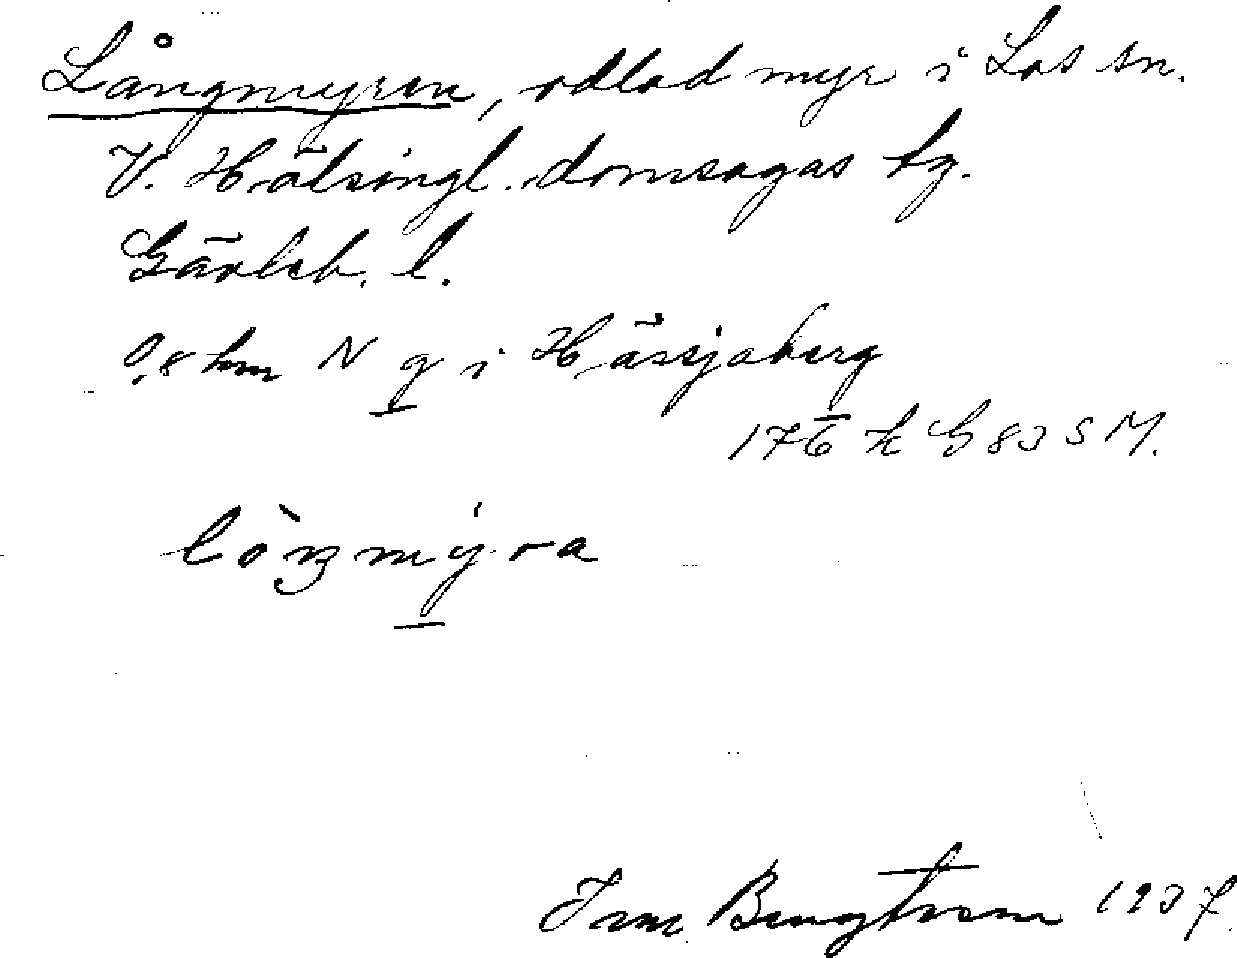 Långmyren, odlad myr i Los sn.
V. Hälsingl. domsagas tg.
Gävleb. l.
0,8 km N g i Hässjaberg
176 h G 83 S M.
lòŋmýra
Bengtsson 1937